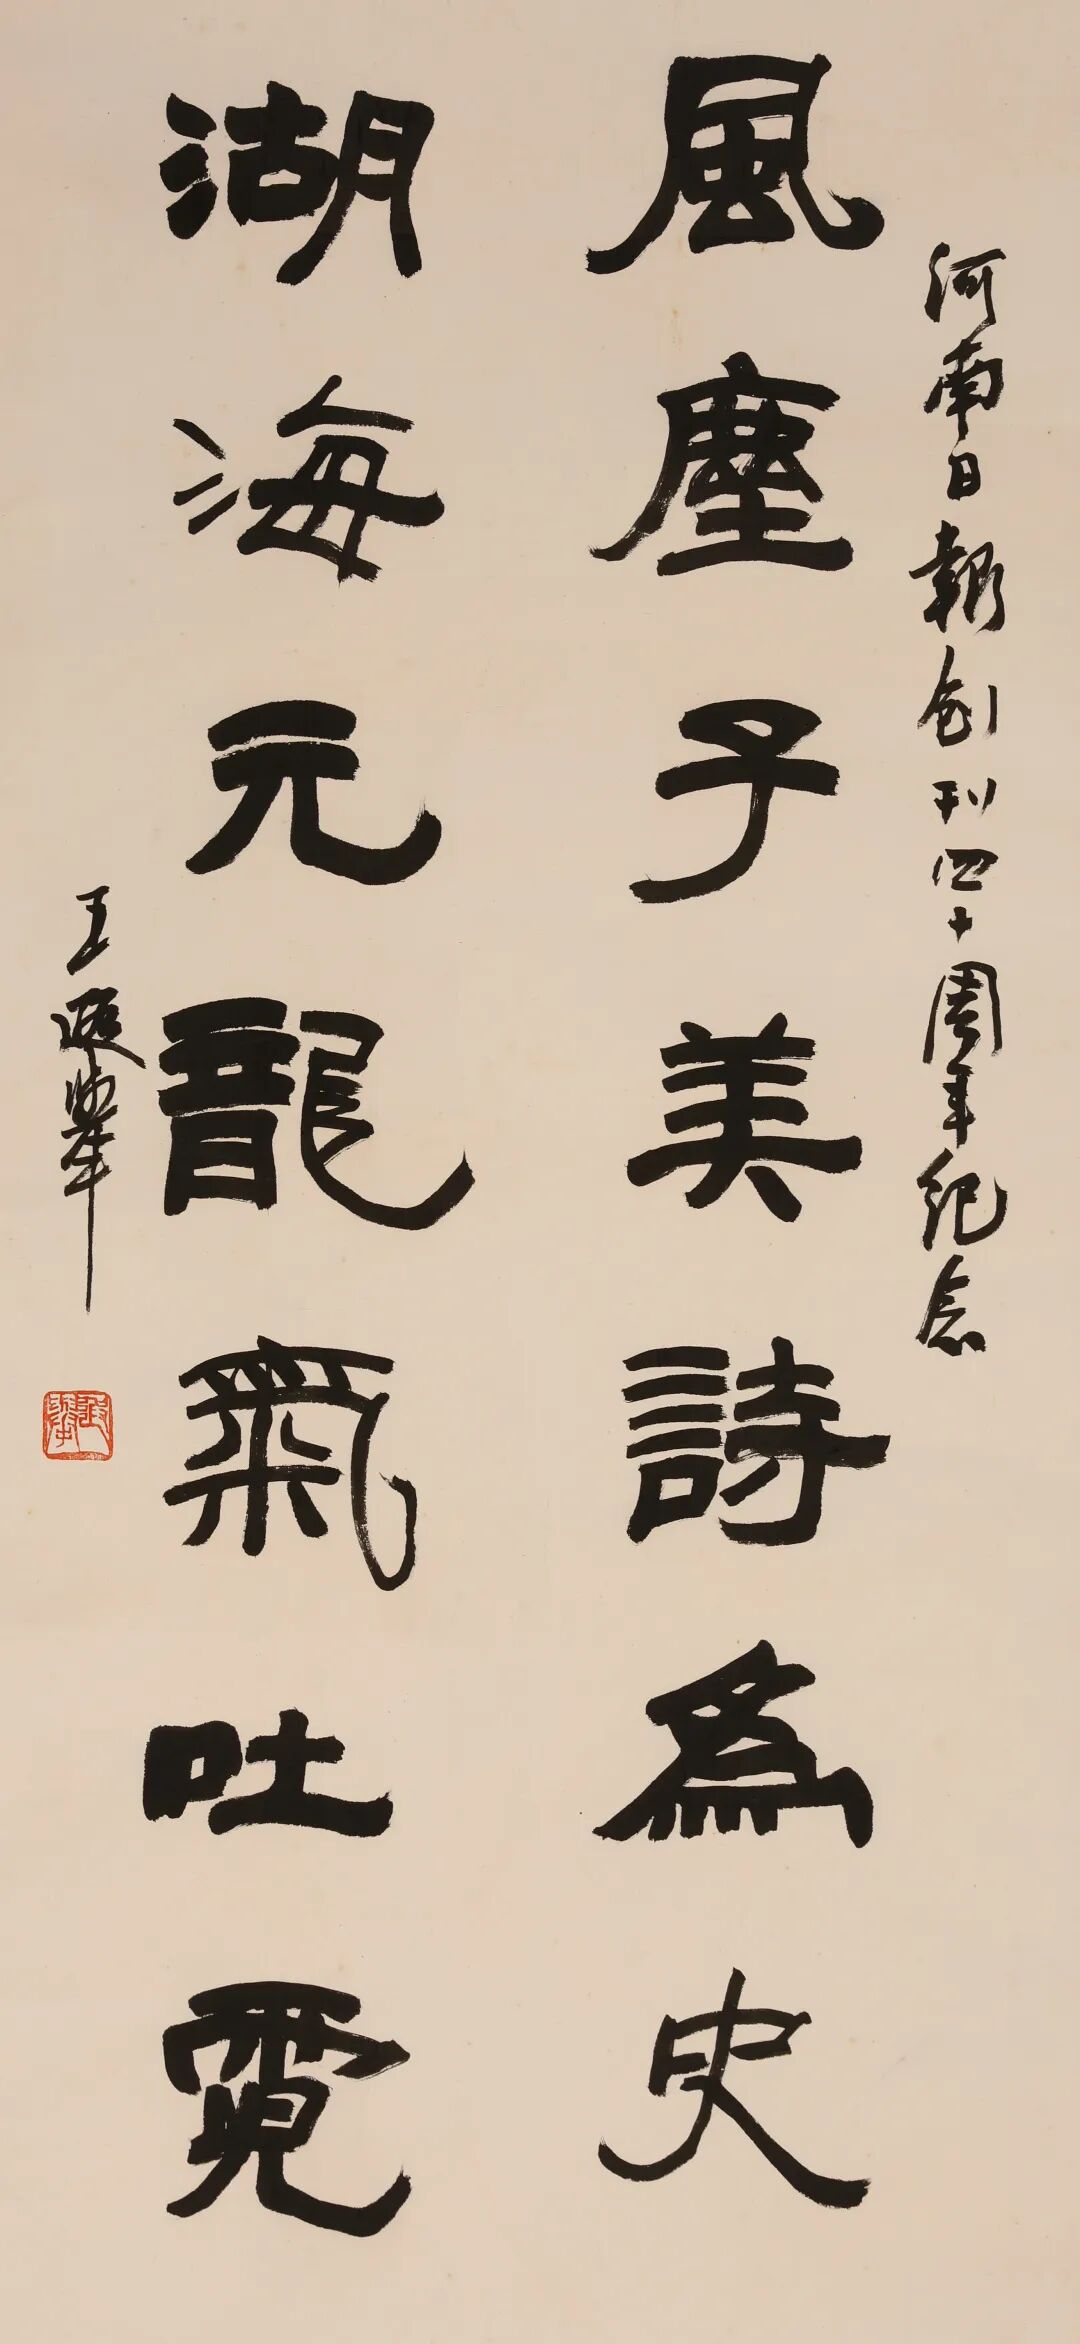 河南日報創刊四十周年纪念
風塵子美詩為史
湖海元龍氣吐霓
王遐舉
遐舉